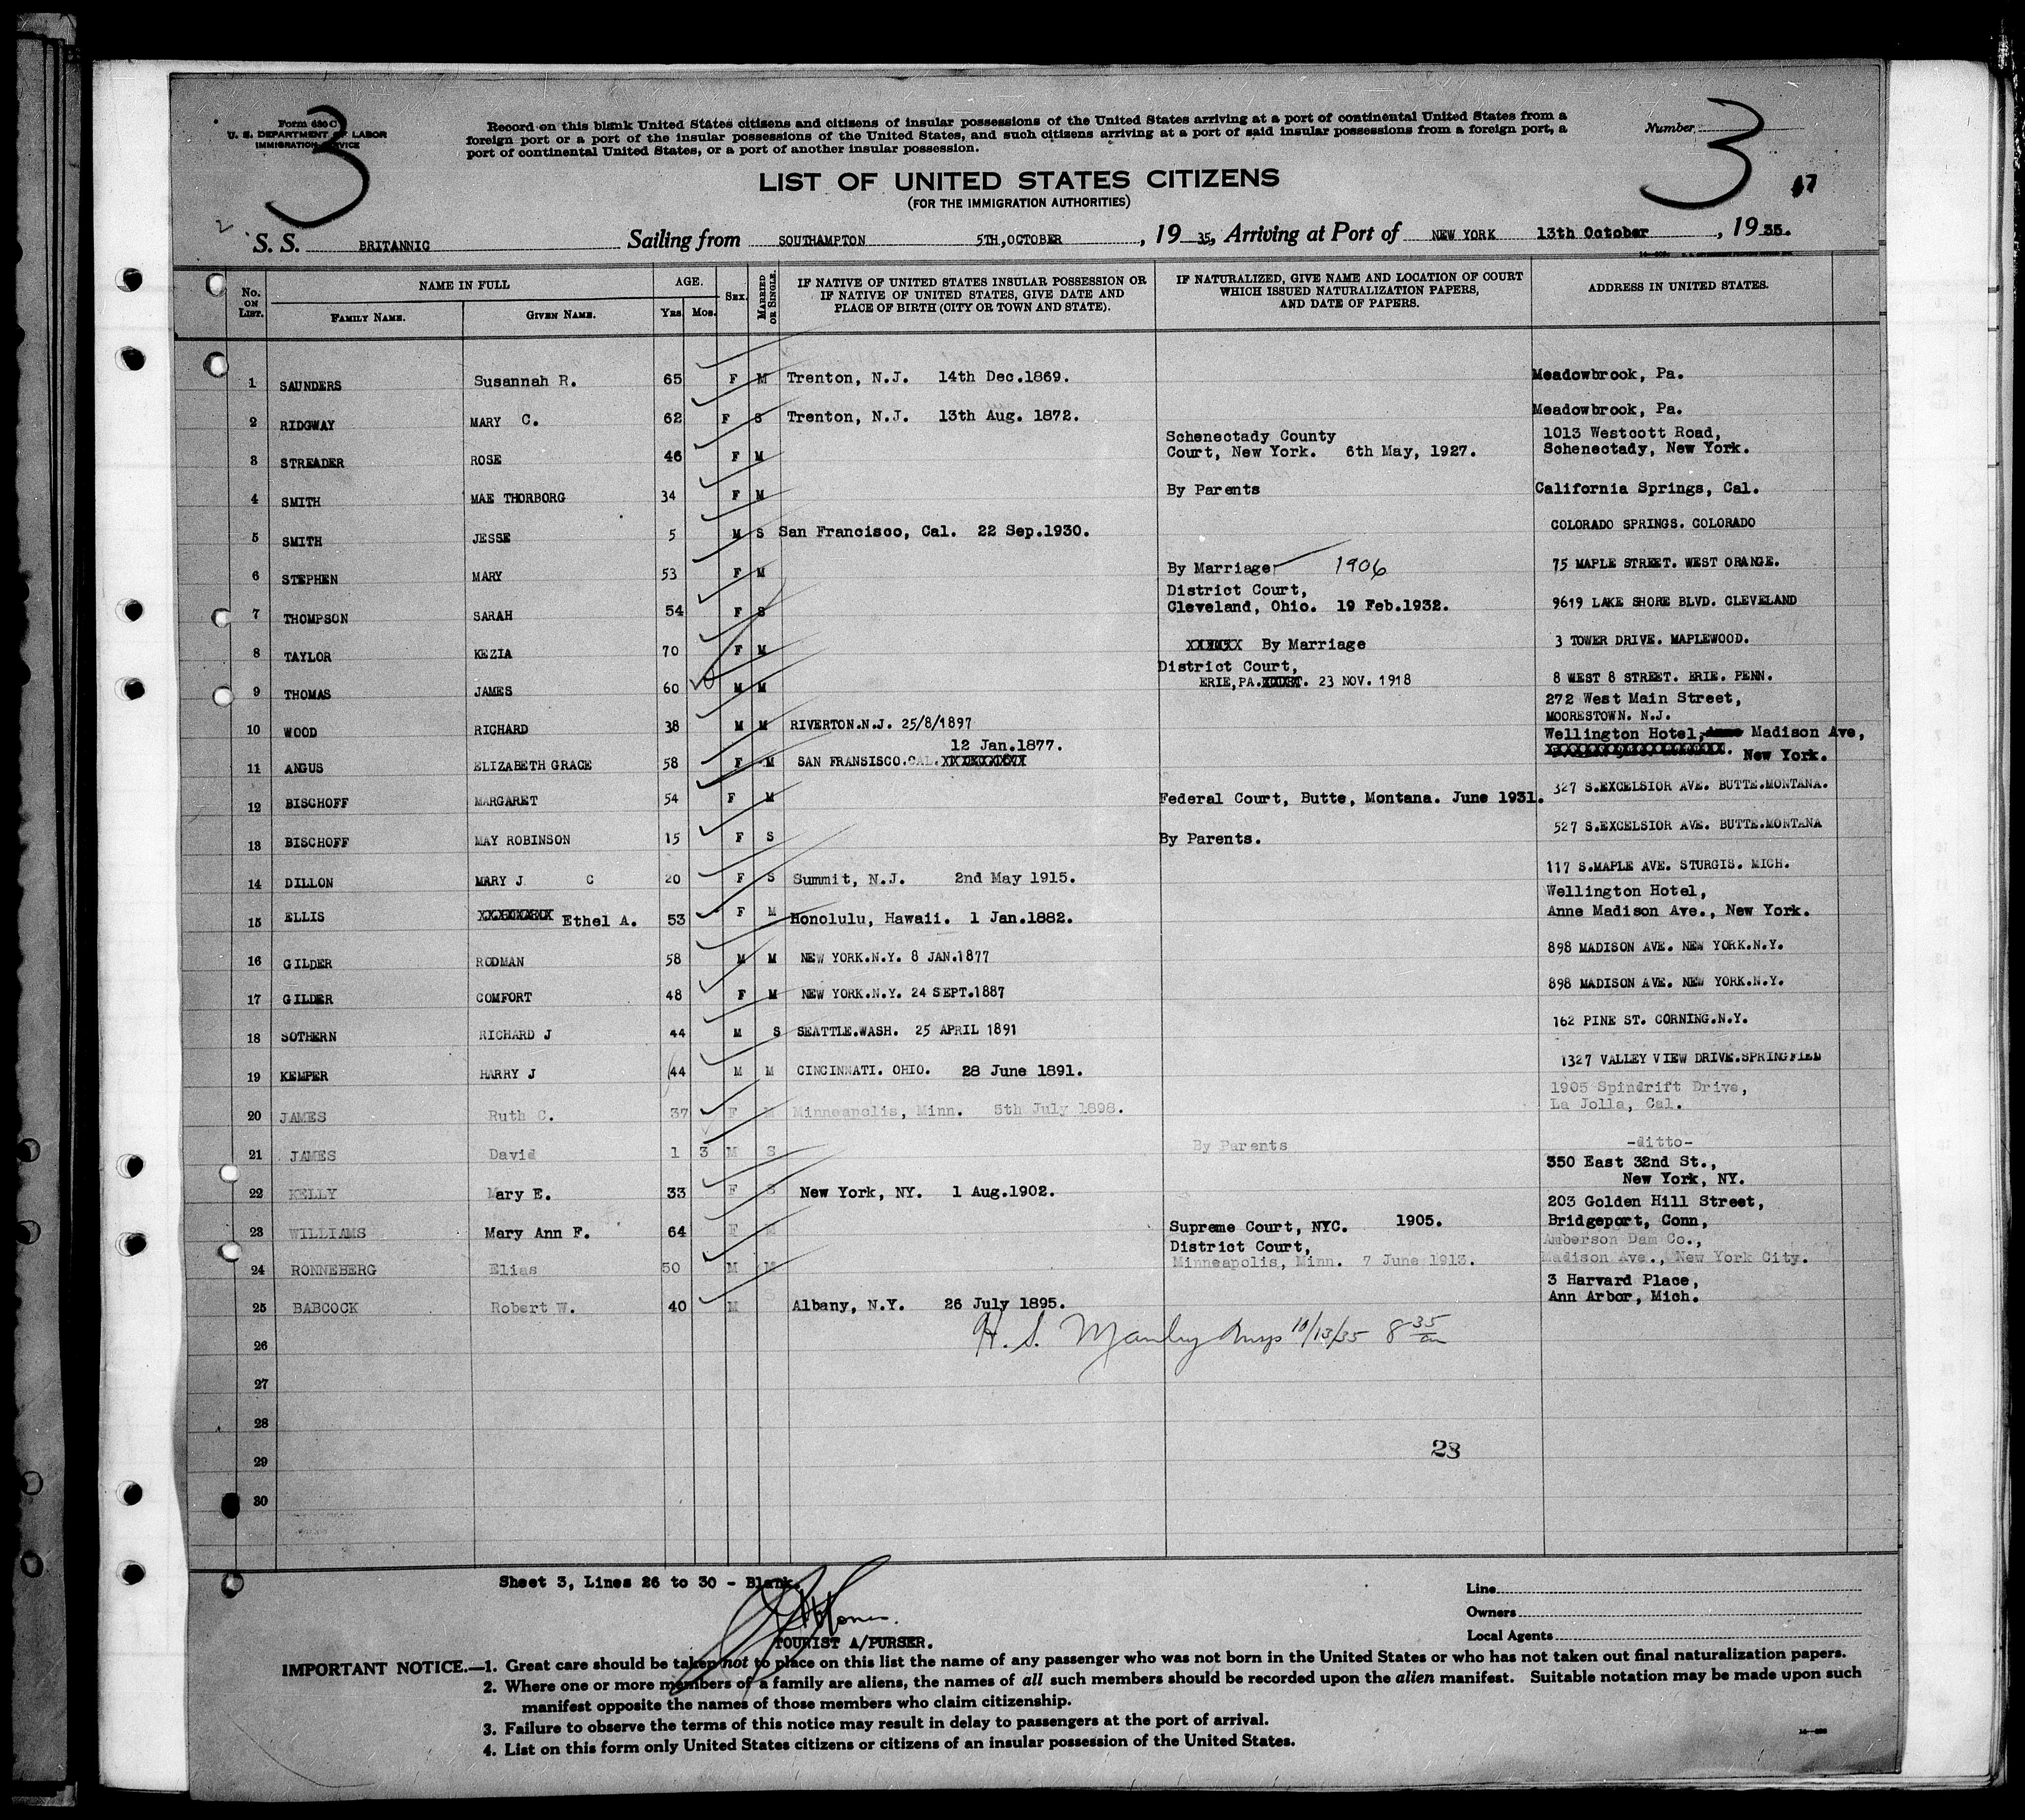 Form 630 C
U. S. DEPARTMENT OF LABOR
IMMIGRATION SERVICE
3
Record on this blank United States citizens and citizens of insular possessions of the United States arriving at a port of continental United States from a
foreign port or a port of the insular possessions of the United States, and such citizens arriving at a port of said insular possessions from a foreign port, a
port of continental United States, or a port of another insular possession.
Number
3
17
LIST OF UNITED STATES CITIZENS
(FOR THE IMMIGRATION AUTHORITIES)
2
S. S. BRITANNIC Sailing from SOUTHAMPTON 5TH,OCTOBER , 19 35, Arriving at Port of NEW YORK 13th October , 19 35.
No. ON LIST. NAME IN FULL AGE. SEX. MARRIED OR SINGLE. IF NATIVE OF UNITED STATES INSULAR POSSESSION OR IF NATIVE OF UNITED STATES, GIVE DATE AND PLACE OF BIRTH (CITY OR TOWN AND STATE). IF NATURALIZED, GIVE NAME AND LOCATION OF COURT WHICH ISSUED NATURALIZATION PAPERS, AND DATE OF PAPERS. ADDRESS IN UNITED STATES.
FAMILY NAME. GIVEN NAME. YRS. MOS.
1 SAUNDERS Susannah R. 65 F M Trenton, N.J. 14th Dec.1869. Meadowbrook, Pa.
2 RIDGWAY MARY C. 62 F S Trenton, N.J. 13th Aug. 1872. Meadowbrook, Pa.
Schenectady County 1013 Westcott Road,
3 STREADER ROSE 46 F M Court, New York. 6th May, 1927. Schenectady, New York.
4 SMITH MAE THORBORG 34 F M By Parents California Springs, Cal.
5 SMITH JESSE 5 M S San Francisco, Cal. 22 Sep.1930. COLORADO SPRINGS. COLORADO
6 STEPHEN MARY 53 F M By Marriage 1906 75 MAPLE STREET. WEST ORANGE.
District Court,
7 THOMPSON SARAH 54 F S Cleveland, Ohio. 19 Feb.1932. 9619 LAKE SHORE BLVD. CLEVELAND
8 TAYLOR KEZIA 70 F M By Marriage 3 TOWER DRIVE. MAPLEWOOD.
District Court,
9 THOMAS JAMES 60 M M ERIE,PA. 23 NOV. 1918 8 WEST 8 STREET. ERIE. PENN.
272 West Main Street,
10 WOOD RICHARD 38 M M RIVERTON.N.J. 25/8/1897 MOORESTOWN. N.J.
12 Jan.1877. Wellington Hotel, Anne Madison Ave,
11 ANGUS ELIZABETH GRACE 58 F M SAN FRANSISCO.CAL. New York.
12 BISCHOFF MARGARET 54 F M Federal Court, Butte, Montana. June 1931. 327 S.EXCELSIOR AVE. BUTTE.MONTANA.
13 BISCHOFF MAY ROBINSON 15 F S By Parents. 527 S.EXCELSIOR AVE. BUTTE.MONTANA
14 DILLON MARY J C 20 F S Summit, N.J. 2nd May 1915. 117 S.MAPLE AVE. STURGIS. MICH.
Wellington Hotel,
15 ELLIS Ethel A. 53 F M Honolulu, Hawaii. 1 Jan.1882. Anne Madison Ave., New York.
16 GILDER RODMAN 58 M M NEW YORK.N.Y. 8 JAN.1877 898 MADISON AVE. NEW YORK.N.Y.
17 GILDER COMFORT 48 F M NEW YORK.N.Y. 24 SEPT.1887 898 MADISON AVE. NEW YORK.N.Y.
18 SOTHERN RICHARD J 44 M S SEATTLE.WASH. 25 APRIL 1891 162 PINE ST. CORNING.N.Y.
19 KEMPER HARRY J 44 M M CINCINNATI. OHIO. 28 June 1891. 1327 VALLEY VIEW DRIVE.SPRINGFIELD
1905 Spindrift Drive,
20 JAMES Ruth C. 37 F M Minneapolis, Minn. 5th July 1898. La Jolla, Cal.
21 JAMES David 1 3 M S By Parents -ditto-
350 East 32nd St.,
22 KELLY Mary E. 33 F S New York, NY. 1 Aug.1902. New York, NY.
203 Golden Hill Street,
23 WILLIAMS Mary Ann F. 64 F M Supreme Court, NYC. 1905. Bridgeport, Conn,
District Court, Amberson Dam Co.,
24 RONNEBERG Elias 50 M M Minneapolis, Minn. 7 June 1913. Madison Ave., New York City.
3 Harvard Place,
25 BABCOCK Robert W. 40 M Albany, N.Y. 26 July 1895. Ann Arbor, Mich.
26 H. S. Manley 10/13/35 8 35
27
28
23
29
30
Sheet 3, Lines 26 to 30 - Blank.
Line
Owners
TOURIST A/PURSER.
Local Agents
IMPORTANT NOTICE.—1. Great care should be taken not to place on this list the name of any passenger who was not born in the United States or who has not taken out final naturalization papers.
2. Where one or more members of a family are aliens, the names of all such members should be recorded upon the alien manifest. Suitable notation may be made upon such
manifest opposite the names of those members who claim citizenship.
3. Failure to observe the terms of this notice may result in delay to passengers at the port of arrival.
4. List on this form only United States citizens or citizens of an insular possession of the United States.